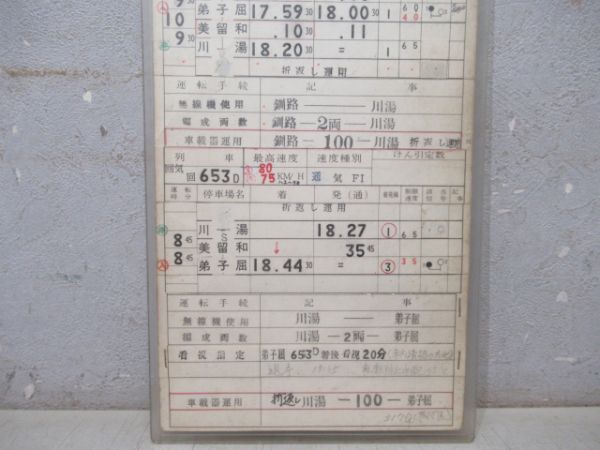 弟子屈 17.59 30 18.00 30 1 60 40
10
美留和 .10 .11
9 30
川 湯 18.20 = 1 65
折返し運用
運転手続 記 事
無線機使用 釧路 ── 川湯
編成両数 釧路 ─2両─ 川湯
車載器運用 釧路 ─ 100 ─ 川湯 折返し運用
列 車 最高速度 速度種別 けん引定数
回 653D 80 75 KM/H 通 気 FI
運転時分 停車場名 着 発(通) 着発線 制限速度 記事
折返し運用
川 湯 18.27 1 65
8 45
美留和 ↓ 35 45
8 45
弟子屈 18.44 30 = 3 35
運転手続 記 事
無線機使用 川湯 ── 弟子屈
編成両数 川湯 ─2両─ 弟子屈
看視指定 弟子屈 653D 着後 看視20分
車載器運用 折返し 川湯 ─ 100 ─ 弟子屈